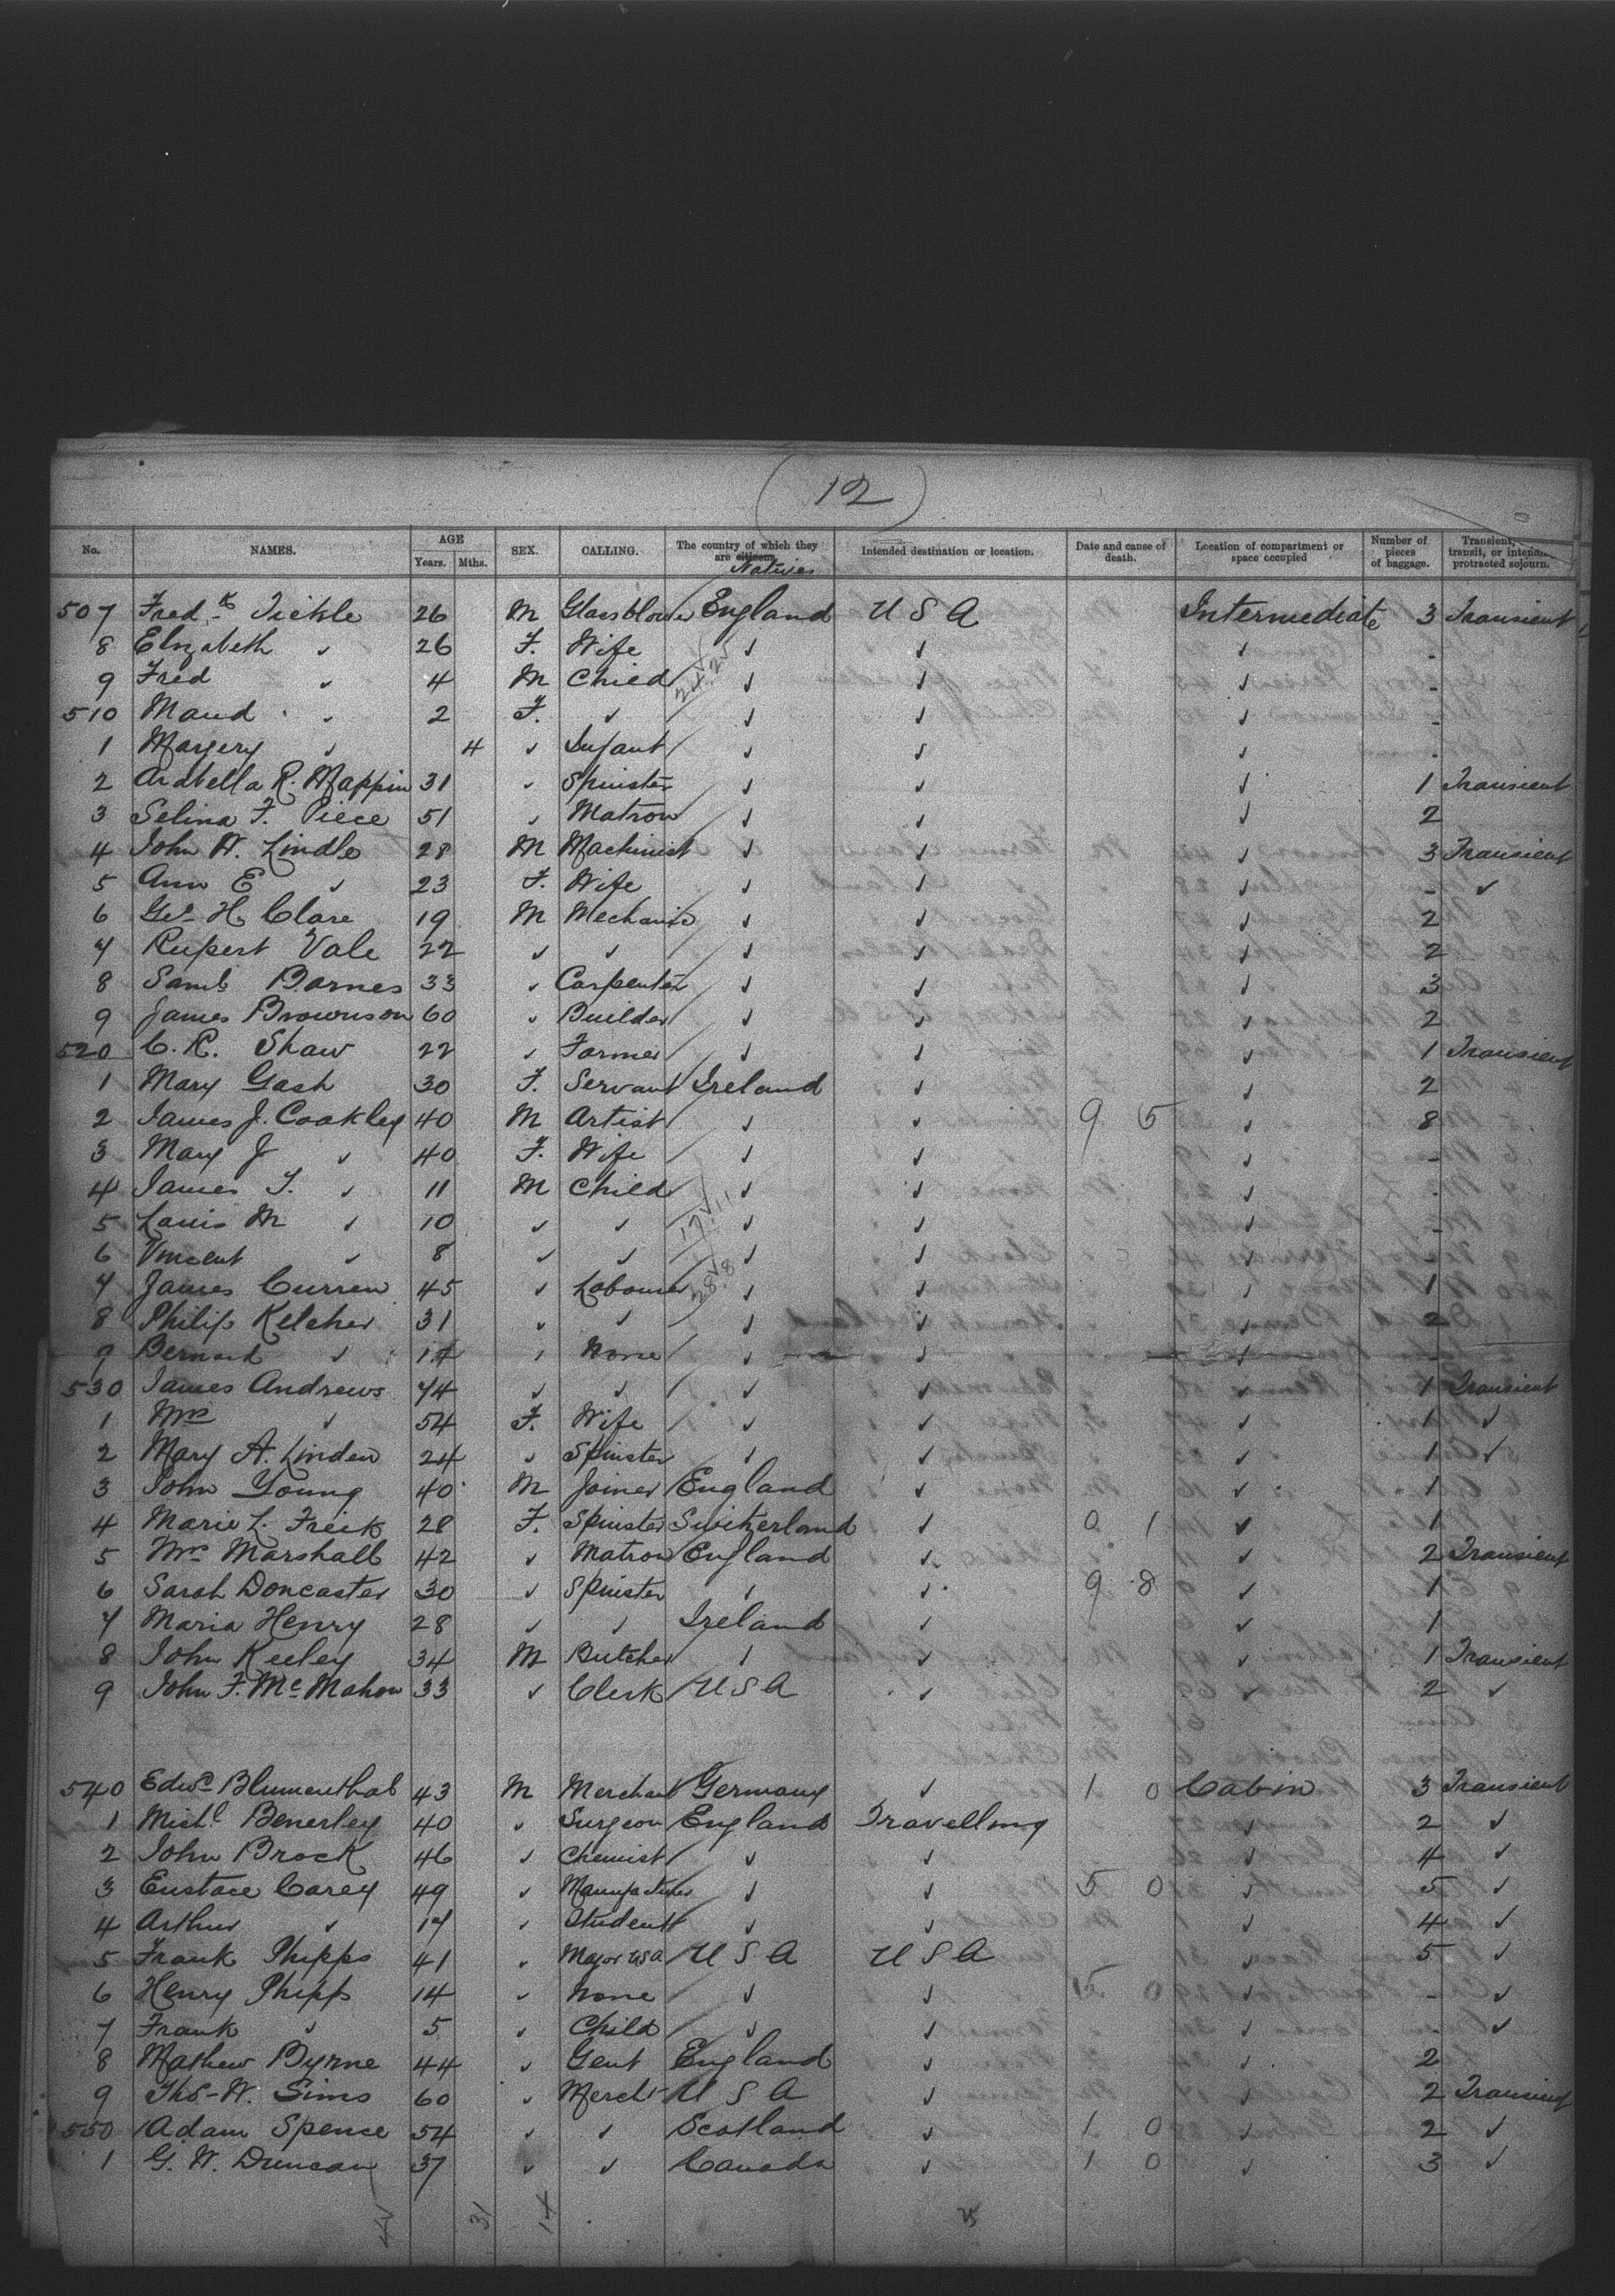 (12)
No. NAMES. AGE Years. Mths. SEX. CALLING. The country of which they are citizens. Natives Intended destination or location. Date and cause of death. Location of compartment or space occupied Number of pieces of baggage. Transient, transit, or protracted sojourn.
507 Fredk Tickle 26 M Glassblower England U S A Intermediate 3 Transient
8 Elizabeth ✓ 26 F. Wife ✓ ✓ ✓ -
9 Fred ✓ 4 M Child ✓ ✓ ✓ -
510 Maud ✓ 2 F. ✓ ✓ ✓ ✓ -
1 Margery ✓ 4 ✓ Infant ✓ ✓ ✓ -
2 Arabella R. Mappin 31 ✓ Spinster ✓ ✓ ✓ 1 Transient
3 Selina F. Piece 51 ✓ Matron ✓ ✓ ✓ 2
4 John W. Lindle 28 M Machinist ✓ ✓ ✓ 3 Transient
5 Ann E ✓ 23 F. Wife ✓ ✓ ✓ - ✓
6 Geo H. Clare 19 M Mechanic ✓ ✓ ✓ 2
7 Rupert Vale 22 ✓ ✓ ✓ ✓ ✓ 2
8 Saml Barnes 33 ✓ Carpenter ✓ ✓ ✓ 3
9 James Brownson 60 ✓ Builder ✓ ✓ ✓ 2
520 C. R. Shaw 22 ✓ Farmer ✓ ✓ ✓ 1 Transient
1 Mary Gash 30 F. Servant Ireland ✓ ✓ 2
2 James J. Coakley 40 M Artist ✓ ✓ 9 5 ✓ 8
3 Mary J ✓ 40 F. Wife ✓ ✓ ✓ -
4 James T. ✓ 11 M Child ✓ ✓ ✓ -
5 Louis M ✓ 10 ✓ ✓ ✓ ✓ ✓ -
6 Vincent ✓ 8 ✓ ✓ ✓ ✓ ✓ -
7 James Curren 45 ✓ Labourer ✓ ✓ ✓ 1
8 Philip Kelcher 31 ✓ ✓ ✓ ✓ ✓ 2
9 Bernard ✓ ✓ None ✓ ✓ ✓ -
530 James Andrews 74 ✓ ✓ ✓ ✓ ✓ 1 Transient
1 Mrs ✓ 54 F. Wife ✓ ✓ ✓ 1 ✓
2 Mary A. Linden 24 ✓ Spinster ✓ ✓ ✓ 1 ✓
3 John Young 40 M Joiner England ✓ ✓ 1
4 Marie L. Freik 28 F. Spinster Switzerland ✓ 0 1 ✓ 1
5 Mrs Marshall 42 ✓ Matron England ✓ ✓ 2 Transient
6 Sarah Doncaster 30 ✓ Spinster ✓ ✓ 9 8 ✓ 1
7 Maria Henry 28 ✓ ✓ Ireland ✓ ✓ 1
8 John Keeley 34 M Butcher ✓ ✓ ✓ 1 Transient
9 John F. McMahon 33 ✓ Clerk U S A ✓ ✓ 2 ✓
540 Edwd Blumenthal 43 M Merchant Germany ✓ 1 0 Cabin 3 Transient
1 Michl Benerley 40 ✓ Surgeon England Travelling ✓ 2 ✓
2 John Brock 46 ✓ Chemist ✓ ✓ ✓ 4 ✓
3 Eustace Carey 49 ✓ Manufacturer ✓ ✓ 5 0 ✓ 5 ✓
4 Arthur ✓ 17 ✓ Student ✓ ✓ ✓ 4 ✓
5 Frank Phipps 41 ✓ Major USA U S A U S A ✓ 5 ✓
6 Henry Phipps 14 ✓ None ✓ ✓ 5 0 ✓ - ✓
7 Frank ✓ 5 ✓ Child ✓ ✓ ✓ - ✓
8 Mathew Byrne 44 ✓ Gent England ✓ ✓ 2
9 Thos W. Sims 60 ✓ Mercht U S A ✓ ✓ 2 Transient
550 Adam Spence 54 ✓ ✓ Scotland ✓ 1 0 ✓ 2 ✓
1 G. W. Duncan 37 ✓ ✓ Canada ✓ 1 0 ✓ 3 ✓
31 14